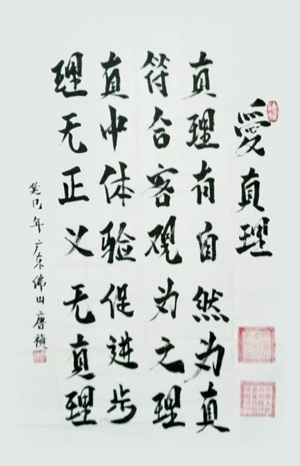 愛真理
真理有自然为真
符合客观为之理
真中体验促进步
理无正义无真理
癸巳年广东佛山唐